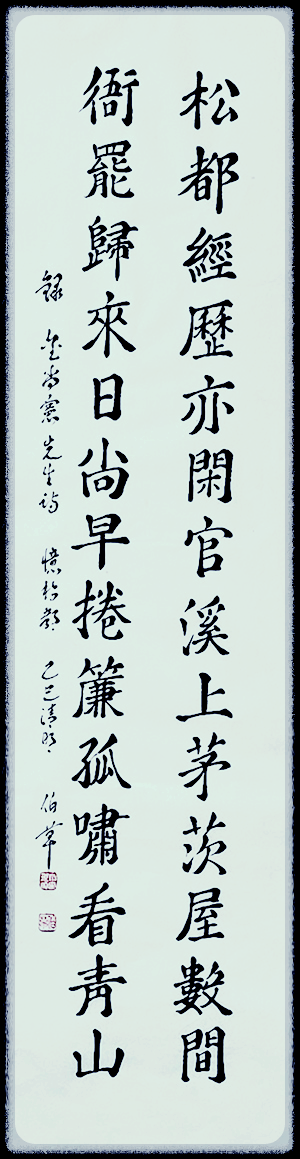 松都經歷亦閑官溪上茅茨屋數間
衙罷歸來日尚早捲簾孤嘯看青山
錄 金尚憲先生詩 憶松都 乙巳清明 伯草